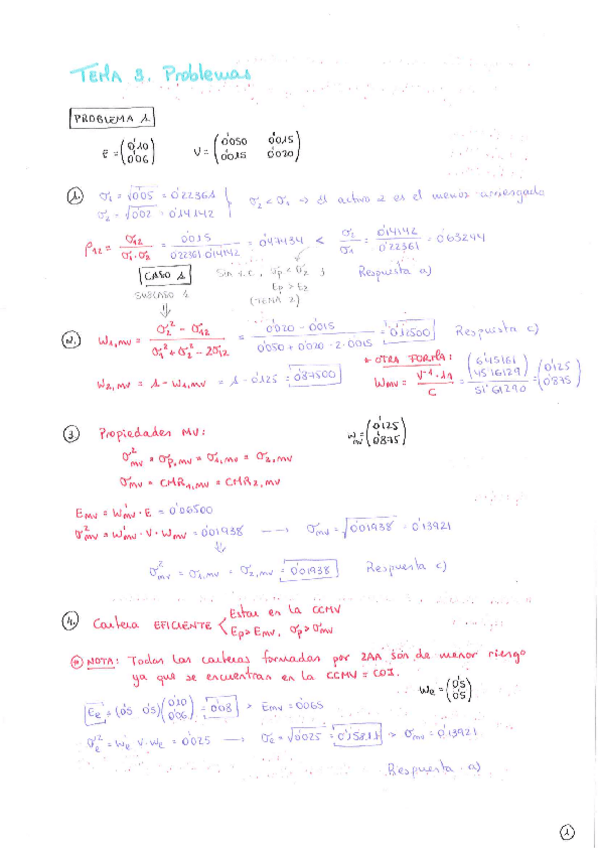 TEMA 3. Problemas
PROBLEMA 1
E = (0'10 0'06) V = (0'050 0'015 0'015 0'020)
1. σ1 = √0'05 = 0'22361
σ2 = √0'02 = 0'14142 } σ2 < σ1 → El activo 2 es el menos arriesgado
ρ12 = σ12 / σ1·σ2 = 0'015 / 0'22361·0'14142 = 0'47434 < σ2 / σ1 = 0'14142 / 0'22361 = 0'63244
CASO 1 Sin v.c, σp < σ2 ; Respuesta a)
SUBCASO 1 Ep > E2
(TEMA 2)
2. W1,MV = σ2² - σ12 / σ1² + σ2² - 2σ12 = 0'020 - 0'015 / 0'050 + 0'020 - 2·0'015 = 0'12500 Respuesta c)
W2,MV = 1 - W1,MV = 1 - 0'125 = 0'87500
* OTRA FORMA:
WMV = V⁻¹·1 / C = (6'45161 45'16129) / 51'61290 = (0'125 0'875)
3. Propiedades MV: WMV = (0'125 0'875)
σ²MV = σp,MV = σ1,MV = σ2,MV
σMV = CMR1,MV = CMR2,MV
EMV = W'MV · E = 0'06500
σ²MV = W'MV · V · WMV = 0'01938 → σMV = √0'01938 = 0'13921
σ²MV = σ1,MV = σ2,MV = 0'01938 Respuesta c)
4. Cartera EFICIENTE < Estar en la CCMV
Ep > EMV, σp > σMV
* NOTA: Todas las carteras formadas por 2AA son de menor riesgo
ya que se encuentran en la CCMV = COI.
We = (0'5 0'5)
Ee = (0'5 0'5) (0'10 0'06) = 0'08 > EMV = 0'065
σ²e = W'e V·We = 0'025 → σe = √0'025 = 0'15811 > σMV = 0'13921
Respuesta a)
1